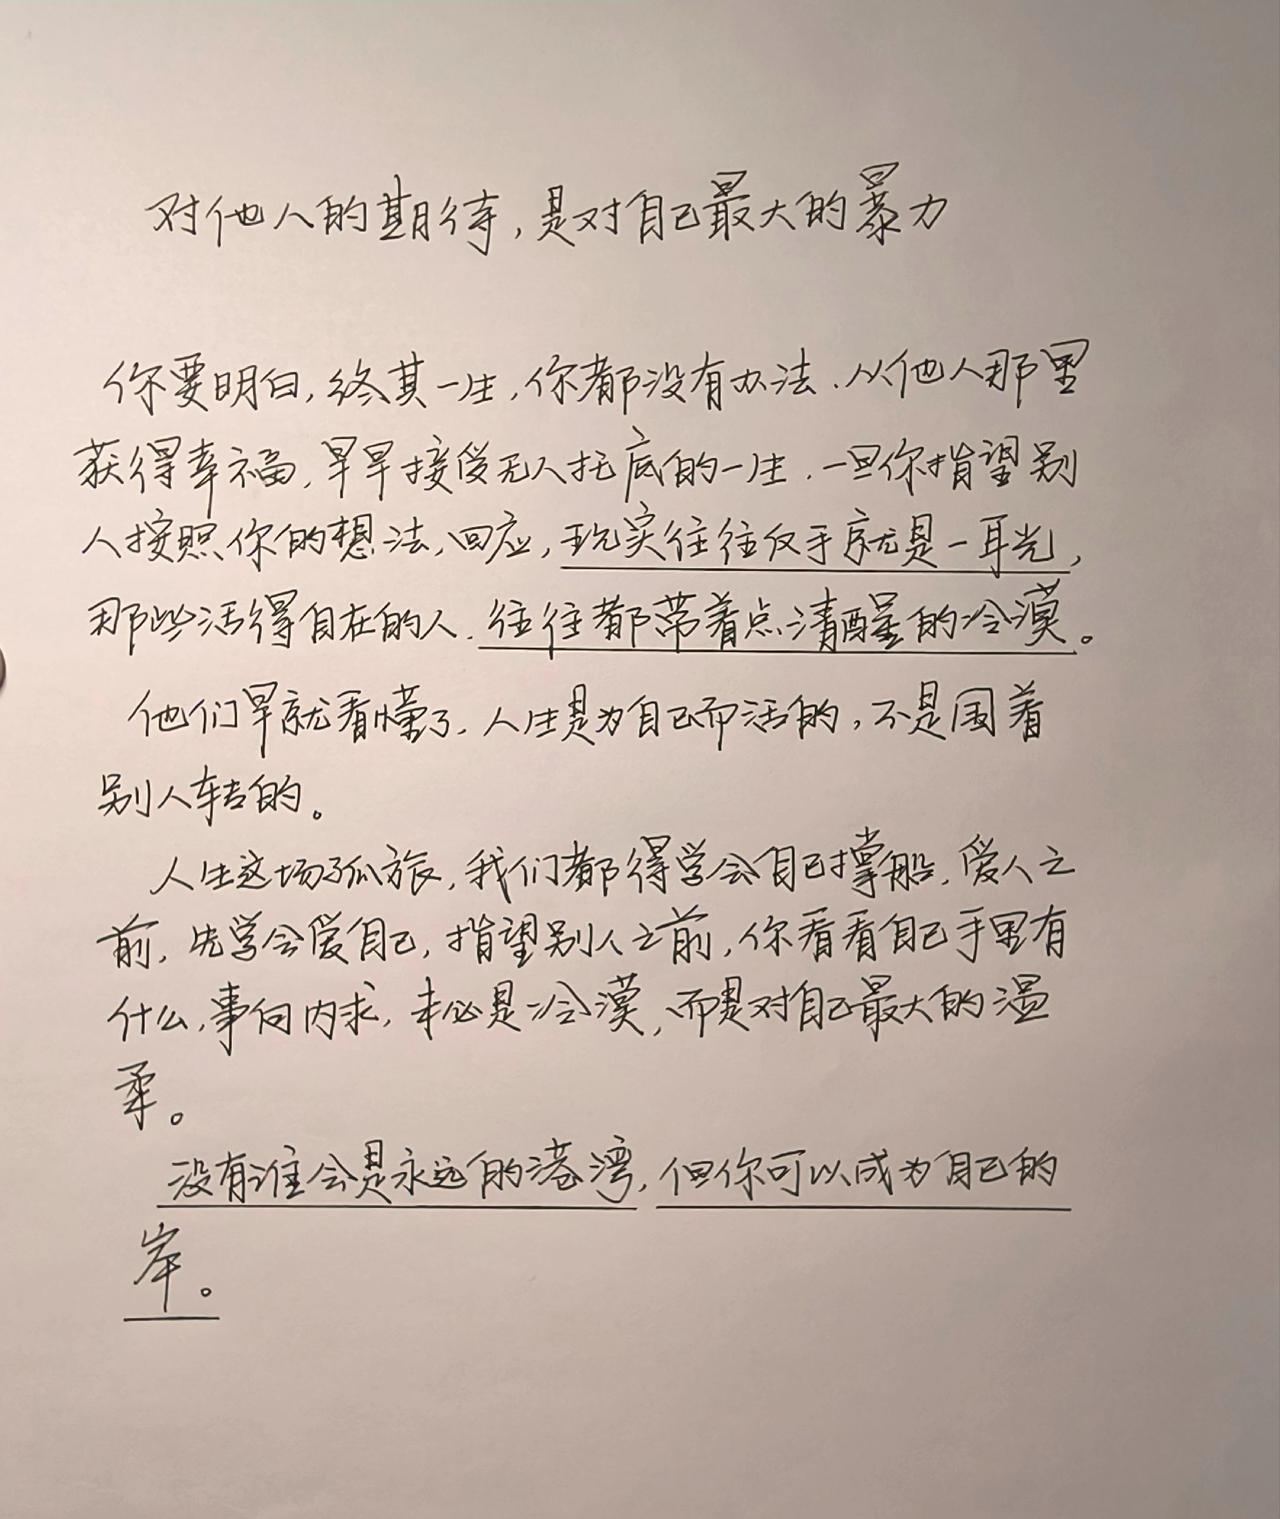 对他人的期待,是对自己最大的暴力
你要明白,终其一生,你都没有办法.从他人那里
获得幸福,早早接受无人托底的一生.一旦你指望别
人按照你的想法,回应,现实往往反手就是一耳光,
那些活得自在的人.往往都带着点清醒的冷漠。
他们早就看懂了.人生是为自己而活的,不是围着
别人转的。
人生这场孤旅,我们都得学会自己撑船,爱人之
前,先学会爱自己,指望别人之前,你看看自己手里有
什么,事向内求,未必是冷漠,而是对自己最大的温
柔。
没有谁会是永远的港湾,但你可以成为自己的
岸。